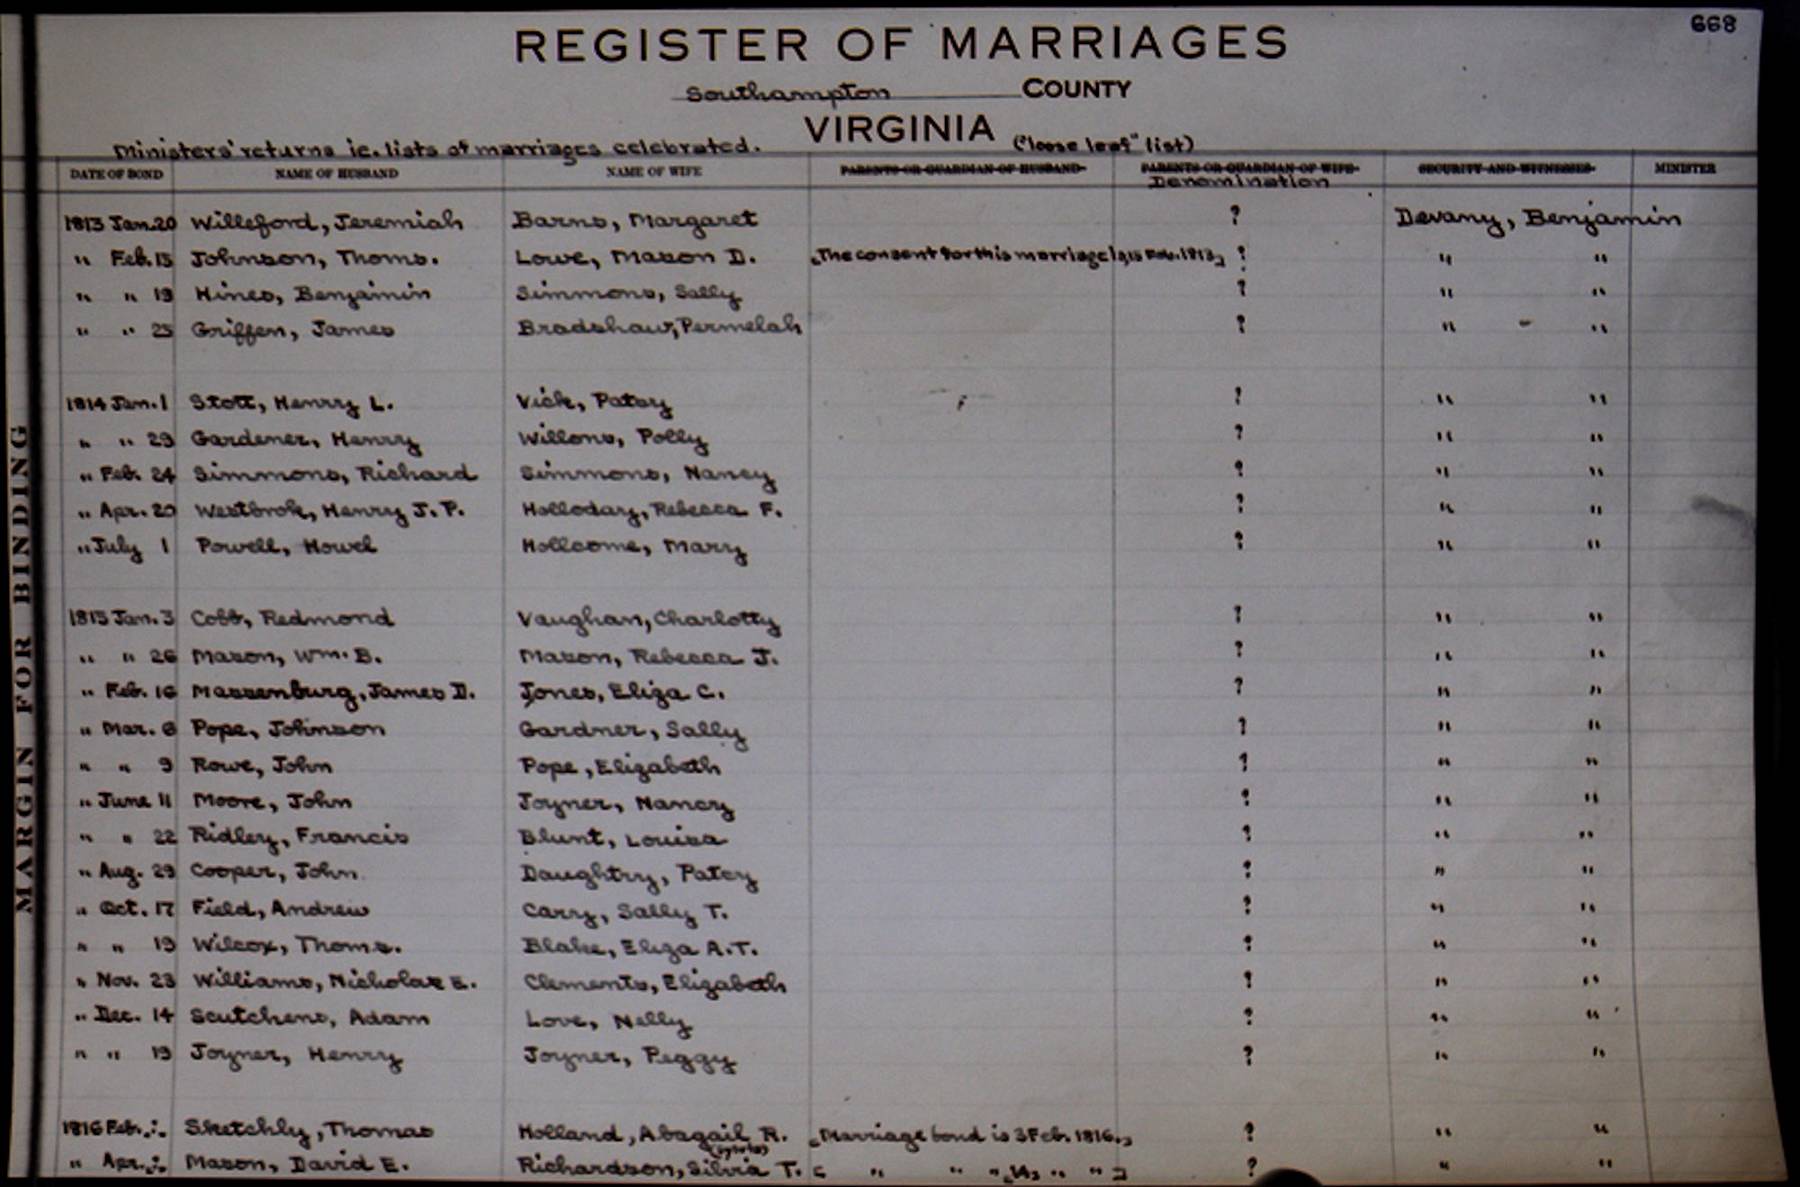 668
REGISTER OF MARRIAGES
Southampton COUNTY
VIRGINIA
Ministers' returns ie. lists of marriages celebrated. ("loose leaf" list)
DATE OF BOND NAME OF HUSBAND NAME OF WIFE PARENTS OR GUARDIAN OF HUSBAND PARENTS OR GUARDIAN OF WIFE SECURITY AND WITNESSES MINISTER
Denomination
1813 Jan. 20 Willeford, Jeremiah Barns, Margaret ? Devany, Benjamin
" Feb. 15 Johnson, Thoms. Lowe, Mason D. The consent for this marriage is 15 Feb. 1813 ? " "
" " 19 Hines, Benjamin Simmons, Sally ? " "
" " 25 Griffen, James Bradshaw, Permelah ? " "
1814 Jan. 1 Stott, Henry L. Vick, Patsy ? " "
" " 29 Gardener, Henry Willons, Polly ? " "
" Feb. 24 Simmons, Richard Simmons, Nancy ? " "
" Apr. 20 Westbrok, Henry J. P. Holloday, Rebecca F. ? " "
" July 1 Powell, Howel Hollcome, Mary ? " "
1815 Jan. 3 Cobb, Redmond Vaughan, Charlotty ? " "
" " 26 Mason, Wm. B. Mason, Rebecca J. ? " "
" Feb. 16 Massenburg, James D. Jones, Eliza C. ? " "
" Mar. 6 Pope, Johnson Gardner, Sally ? " "
" " 9 Rowe, John Pope, Elizabeth ? " "
" June 11 Moore, John Joyner, Nancy ? " "
" " 22 Ridley, Francis Blunt, Louisa ? " "
" Aug. 29 Cooper, John Daughtry, Patcy ? " "
" Oct. 17 Field, Andrew Carry, Sally T. ? " "
" " 19 Wilcox, Thoms. Blake, Eliza A.T. ? " "
" Nov. 23 Williams, Nicholas E. Clements, Elizabeth ? " "
" Dec. 14 Scutchens, Adam Love, Nelly ? " "
" " 19 Joyner, Henry Joyner, Peggy ? " "
1816 Feb. Sketchly, Thomas Holland, Abagail R. Marriage bond is 3 Feb. 1816. ? " "
" Apr. Mason, David E. Richardson, Silvia T. " " " " " ? " "
MARGIN FOR BINDING